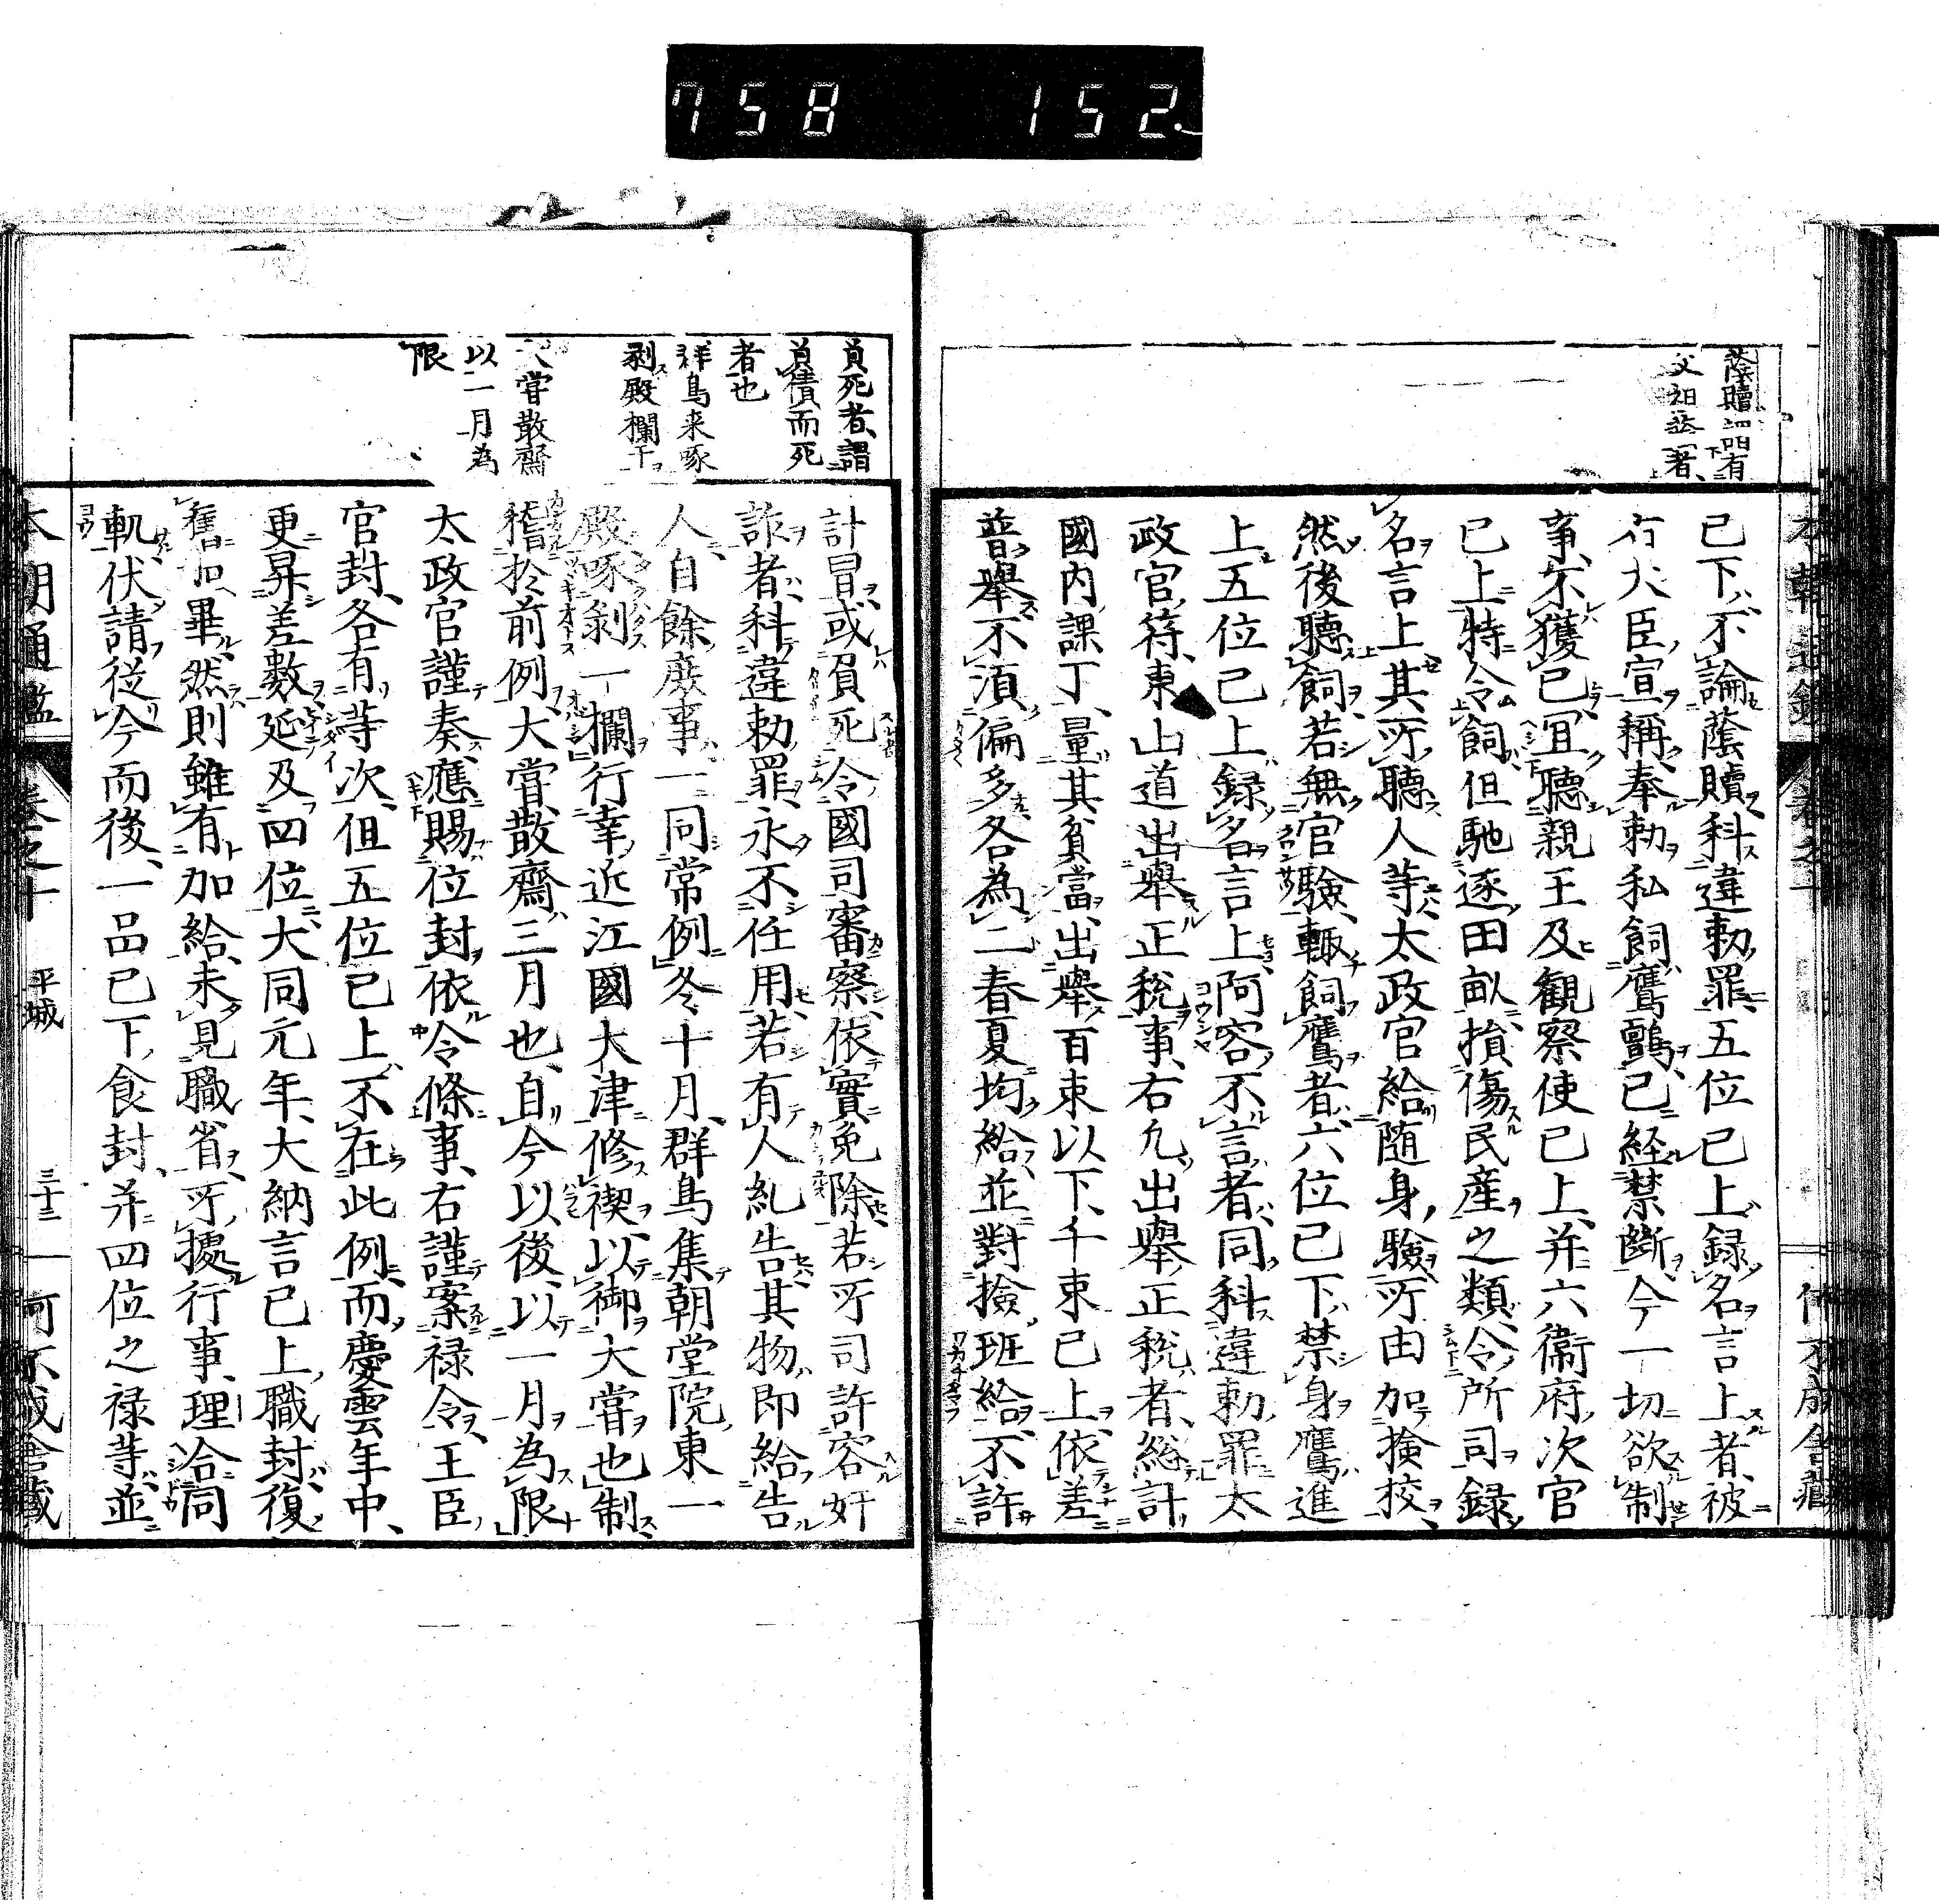 758 152
蔭贖謂有
父祖蔭者、
已下不論蔭贖科違勅罪五位已上録名言上者、被
右大臣宣稱、奉勅私飼鷹鸇、已経禁斷、今一切欲制
事、不獲已、宜聽親王及観察使已上、并六衞府次官
已上特令飼但馳逐田畝損傷民産之類、令所司録
名言上其所聽人等太政官給随身驗所由加撿校、
然後聽飼、若無官驗、輙飼鷹者、六位已下禁身鷹進
上五位已上録名言上阿容不言者、同科違勅罪太
政官符、東山道出舉正税事、右凢出舉正税者、総計
國内課丁、量其貧富、出舉百束以下、千束已上、依差
普舉不湏偏多各為二春夏均給、並對撿班給、不許
負死者、謂
負債而死
者也
群鳥来啄
剥殿欄干
大嘗散齋
以一月為
限
計冒或負死令國司審察、依實免除若所司許容奸
詐者、科違勅罪、永不任用、若有人糺告其物即給告
人自餘庶事一同常例冬十月、群鳥集朝堂院東一
殿啄剥一欄行幸近江國大津修禊以御大嘗也制
稽於前例、大嘗散齋三月也、自今以後、以一月為限
太政官謹奏、應賜位封依令條事、右謹案禄令、王臣
官封、各有等次、但五位已上不在此例、而慶雲年中、
更昇差數延及四位大同元年、大納言已上職封復
舊已畢然則雖有加給、未見職省、所據行事、理洽同
軌伏請從今而後、一品已下食封、并四位之禄等、並
本朝通鑑 卷之十 平城 三十三